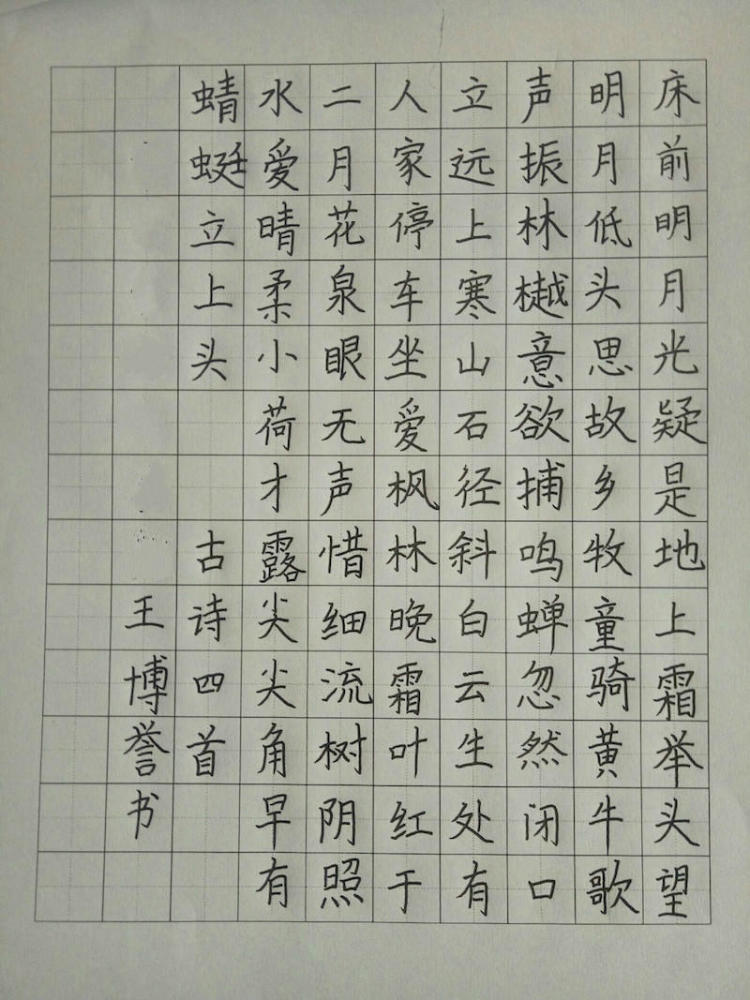 床前明月光疑是地上霜举头望
明月低头思故乡牧童骑黄牛歌
声振林樾意欲捕鸣蝉忽然闭口
立远上寒山石径斜白云生处有
人家停车坐爱枫林晚霜叶红于
二月花泉眼无声惜细流树阴照
水爱晴柔小荷才露尖尖角早有
蜻蜓立上头 古诗四首
王博誉书